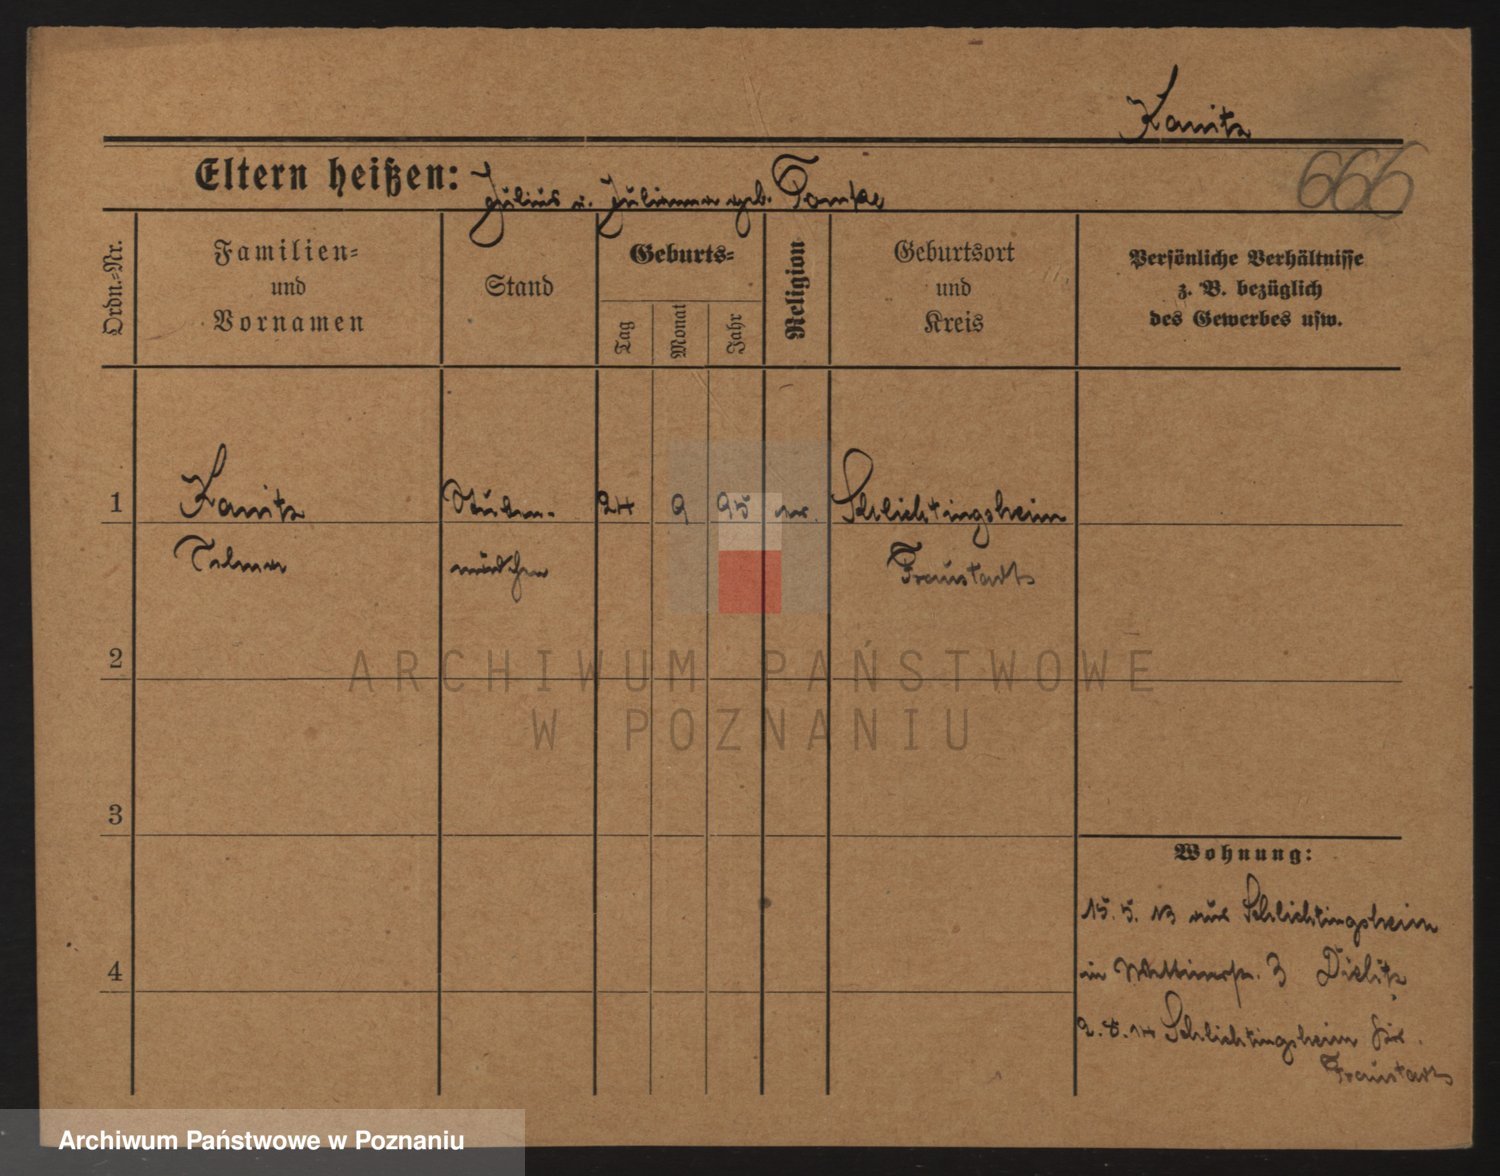 Kanitz
666
Eltern heißen: Julius u. Julianna geb. Tomske
Ordn.=Nr.
Familien=
und
Vornamen
Stand
Geburts=
Tag
Monat
Jahr
Religion
Geburtsort
und
Kreis
Persönliche Verhältnisse
z. B. bezüglich
des Gewerbes usw.
1 Kanitz Stuben- 24 9 95 ev. Schlichtingsheim
Selma mädchen Fraustadt
2
ARCHIWUM PAŃSTWOWE
W POZNANIU
3
Wohnung:
15. 5. 13 aus Schlichtingsheim
4
in 3
2. 5. 14 Schlichtingsheim Kr.
Fraustadt
Archiwum Państwowe w Poznaniu